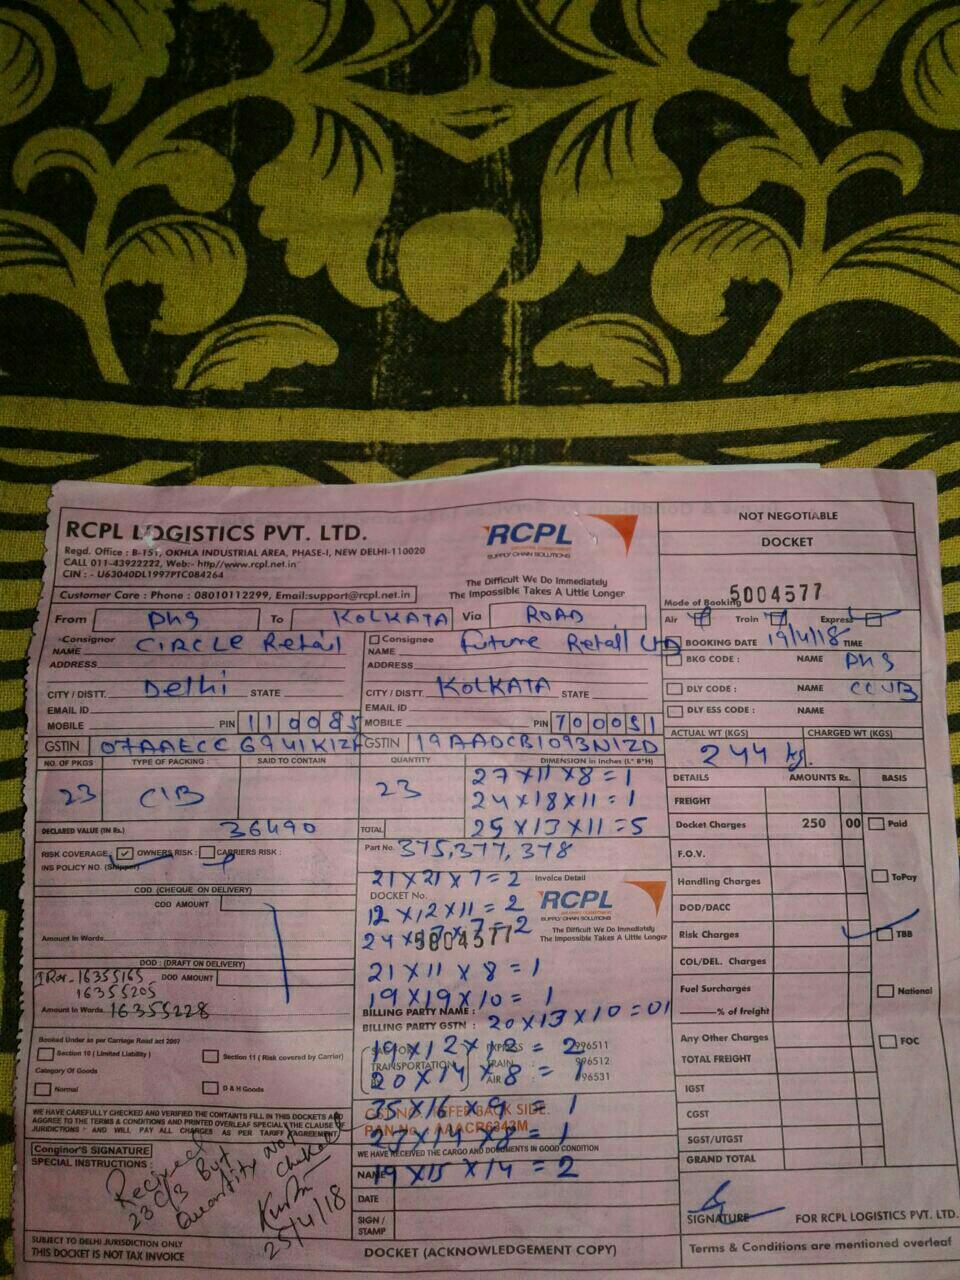 RCPL LOGISTICS PVT. LTD.
Regd. Office : B-151, OKHLA INDUSTRIAL AREA, PHASE-I, NEW DELHI-110020
CALL 011-43922222, Web:- http//www.rcpl.net.in
CIN : - U63040DL1997PTC084264
Customer Care : Phone : 08010112299, Email:support@rcpl.net.in
RCPL
SUPPLY CHAIN SOLUTIONS
The Difficult We Do Immediately
The Impossible Takes A Little Longer
NOT NEGOTIABLE
DOCKET
5004577
Mode of Booking
Air Train Express
From To KOLKATA Via ROAD
Consignor
NAME CIRCLE Retail
ADDRESS
CITY / DISTT. Delhi STATE
EMAIL ID
MOBILE PIN 110085
GSTIN
Consignee
NAME Future Retail Ltd
ADDRESS
CITY / DISTT. KOLKATA STATE
EMAIL ID
MOBILE PIN 700051
GSTIN 19AADCB1093N1ZD
BOOKING DATE 19/4/18 TIME
BKG CODE : NAME
DLY CODE : NAME
DLY ESS CODE : NAME
ACTUAL WT (KGS) CHARGED WT (KGS)
244 kg.
NO. OF PKGS TYPE OF PACKING : SAID TO CONTAIN QUANTITY DIMENSION in Inches (L* B*H)
23 C/B 23
27 X 11 X 8 = 1
24 X 18 X 11 = 1
25 X 13 X 11 = 5
DECLARED VALUE (IN Rs.) 36490
TOTAL
Part No. 375, 377, 378
RISK COVERAGE: OWNERS RISK : CARRIERS RISK :
INS POLICY NO. (Shipper)
COD (CHEQUE ON DELIVERY)
COD AMOUNT
Amount in Words
DOD : (DRAFT ON DELIVERY)
16355165 DOD AMOUNT
16355205
Amount in Words 16355228
21 X 21 X 7 = 2
Invoice Detail
DOCKET No.
12 X 12 X 11 = 2
5004577
RCPL
SUPPLY CHAIN SOLUTIONS
The Difficult We Do Immediately
The Impossible Takes A Little Longer
21 X 11 X 8 = 1
19 X 19 X 10 = 1
BILLING PARTY NAME :
BILLING PARTY GSTN : 20 X 13 X 10 = 01
19 X 12 X 12 = 2
996511
TRANSPORTATION TRAIN : 996512
20 X 14 X 8 = 1
AIR : 996531
35 X 16 X 9 = 1
REFER BACK SIDE.
PAN No.
27 X 14 X 8 = 1
WE HAVE RECEIVED THE CARGO AND DOCUMENTS IN GOOD CONDITION
NAME
19 X 15 X 14 = 2
DATE
SIGN /
STAMP
DETAILS AMOUNTS Rs. BASIS
FREIGHT
Docket Charges 250 00 Paid
F.O.V.
Handling Charges ToPay
DOD/DACC
Risk Charges TBB
COL/DEL. Charges
Fuel Surcharges National
% of freight
Any Other Charges FOC
TOTAL FREIGHT
IGST
CGST
SGST/UTGST
GRAND TOTAL
SIGNATURE FOR RCPL LOGISTICS PVT. LTD.
Terms & Conditions are mentioned overleaf
Booked Under as per Carriage Road act 2007
Section 10 ( Limited Liability ) Section 11 ( Risk covered by Carrier)
Category Of Goods
Normal D & H Goods
WE HAVE CAREFULLY CHECKED AND VERIFIED THE CONTAINTS FILL IN THIS DOCKETS AND
AGGREE TO THE TERMS & CONDITIONS AND PRINTED OVERLEAF SPECIALLY THE CLAUSE OF
JURISDICTIONS AND WILL PAY ALL CHARGES AS PER TARIFF AGREEMENT.
Conginor'S SIGNATURE
SPECIAL INSTRUCTIONS :
Recived
23 C/B But
Quantity Not
25/4/18
SUBJECT TO DELHI JURISDICTION ONLY
THIS DOCKET IS NOT TAX INVOICE
DOCKET (ACKNOWLEDGEMENT COPY)